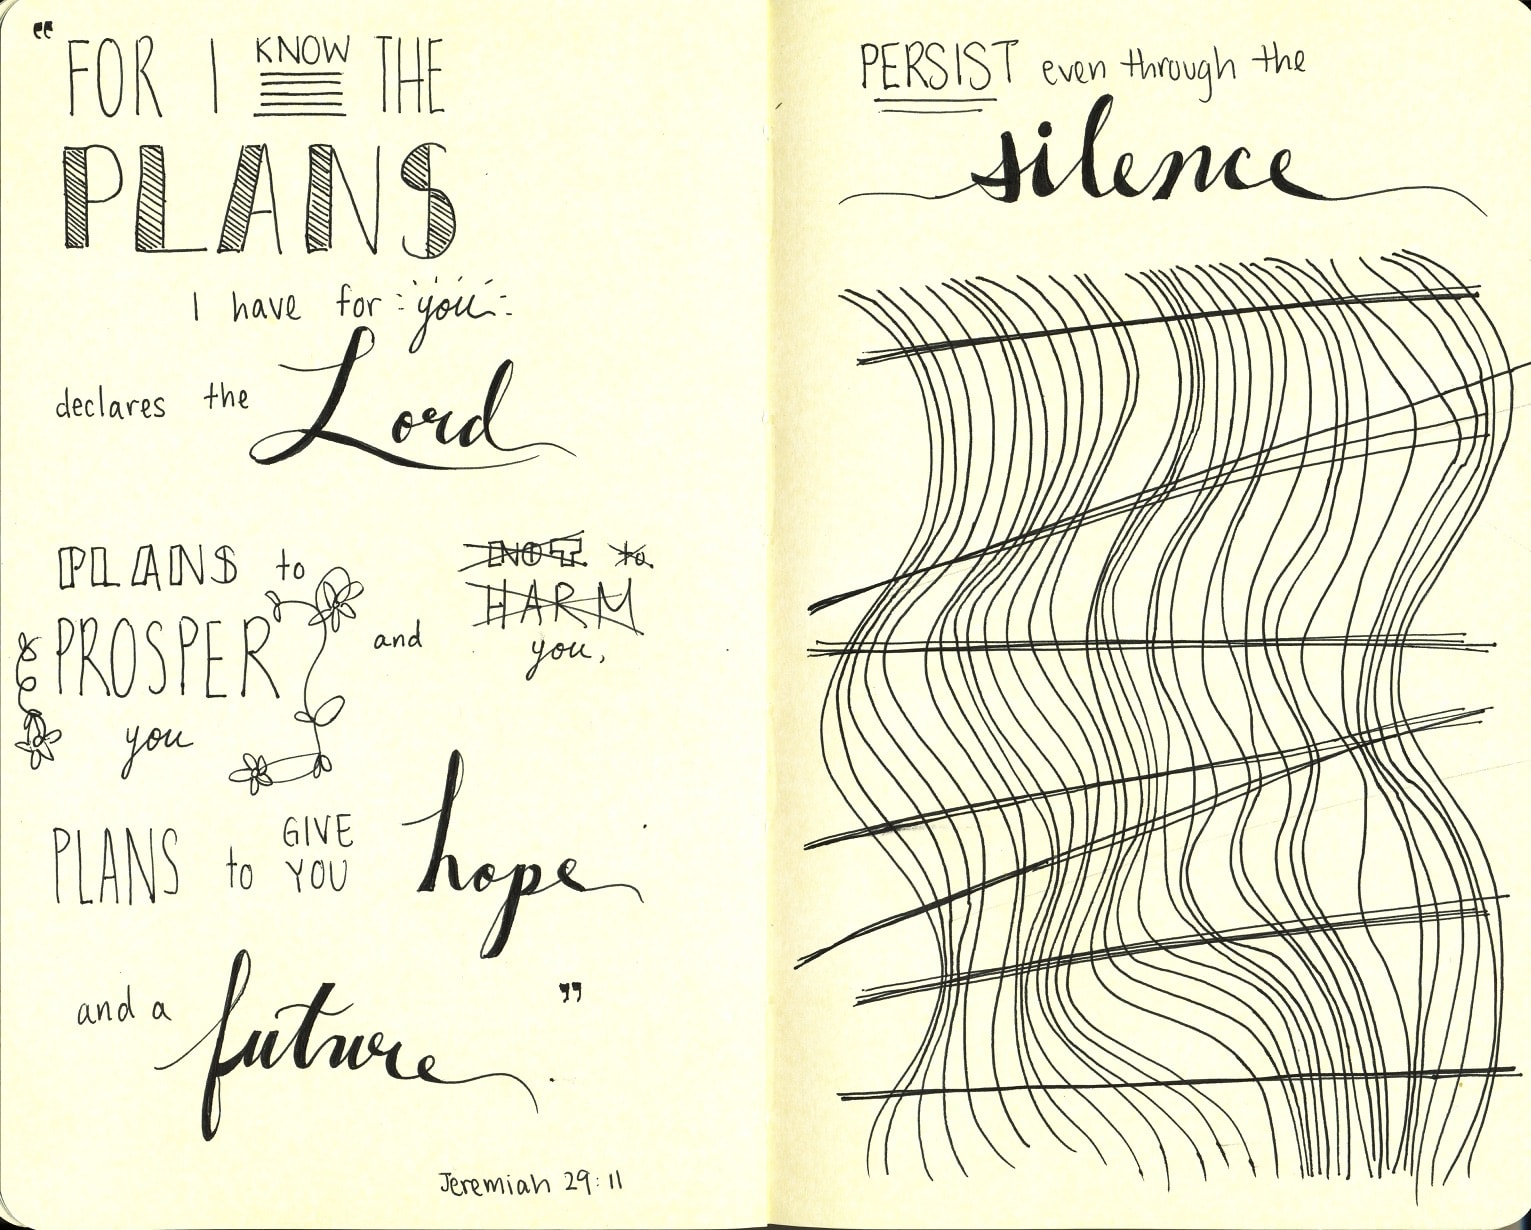 “ FOR I KNOW THE
PLANS
I have for you
declares the Lord
PLANS to
PROSPER
you
and
NOT to
HARM
you,
PLANS to GIVE YOU hope
and a future. ”
Jeremiah 29:11
PERSIST even through the
silence